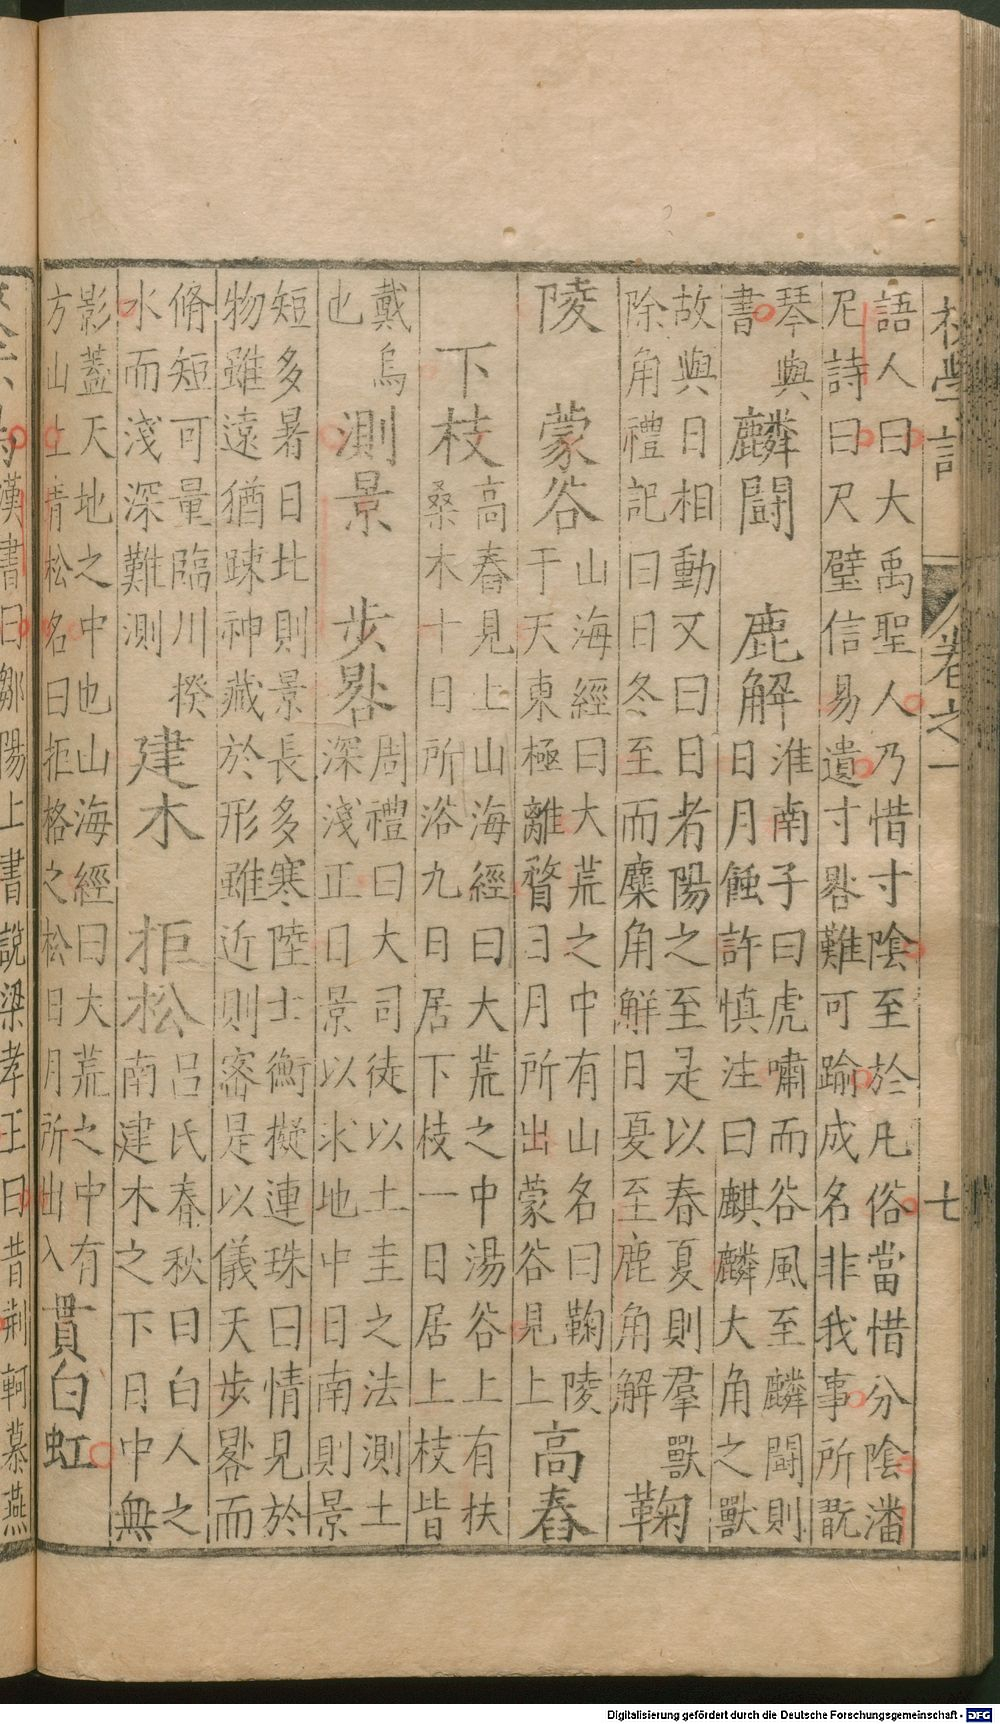 卷之一
七
語人曰大禹聖人乃惜寸陰至於凡俗當惜分陰潘
尼詩曰尺璧信易遺寸晷難可踰成名非我事所翫
琴與
書
麟鬪
鹿解
淮南子曰虎嘯而谷風至麟鬪則
日月蝕許慎注曰麒麟大角之獸
故與日相動又曰日者陽之至是以春夏則羣獸
除角禮記曰日冬至而麋角解日夏至鹿角解
鞠
陵
蒙谷
山海經曰大荒之中有山名曰鞠陵
于天東極離瞀日月所出蒙谷見上
高舂
下枝
高舂見上山海經曰大荒之中湯谷上有扶
桑木十日所浴九日居下枝一日居上枝皆
戴烏
也
測景
步晷
周禮曰大司徒以土圭之法測土
深淺正日景以求地中日南則景
短多暑日北則景長多寒陸士衡擬連珠曰情見於
物雖遠猶踈神藏於形雖近則宻是以儀天步晷而
脩短可量臨川揆
水而淺深難測
建木
拒松
呂氏春秋曰白人之
南建木之下日中無
影蓋天地之中也山海經曰大荒之中有
方山上青松名曰拒格之松日月所出入
貫白虹
漢書曰鄒陽上書說梁孝王曰昔荊軻慕燕
Digitalisierung gefördert durch die Deutsche Forschungsgemeinschaft - DFG